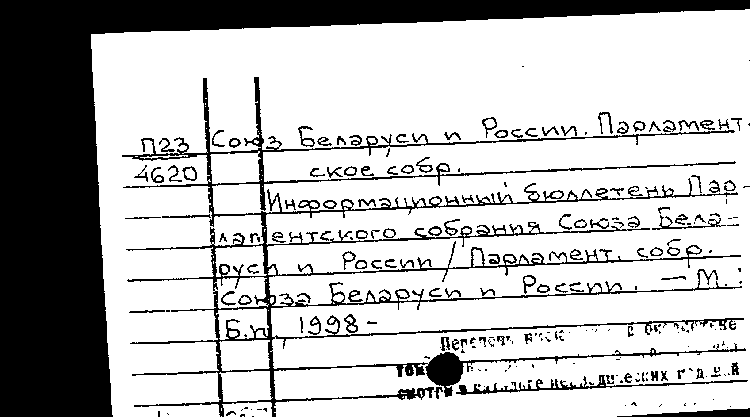 П23 Союз Беларуси и России. Парламент-
4620 ское собр.
Информационный бюллетень Пар-
ламентского собрания Союза Бела-
руси и России / Парламент. собр.
Союза Беларуси и России. — М. :
Б.и, 1998 -
Перечень
смотри в каталоге